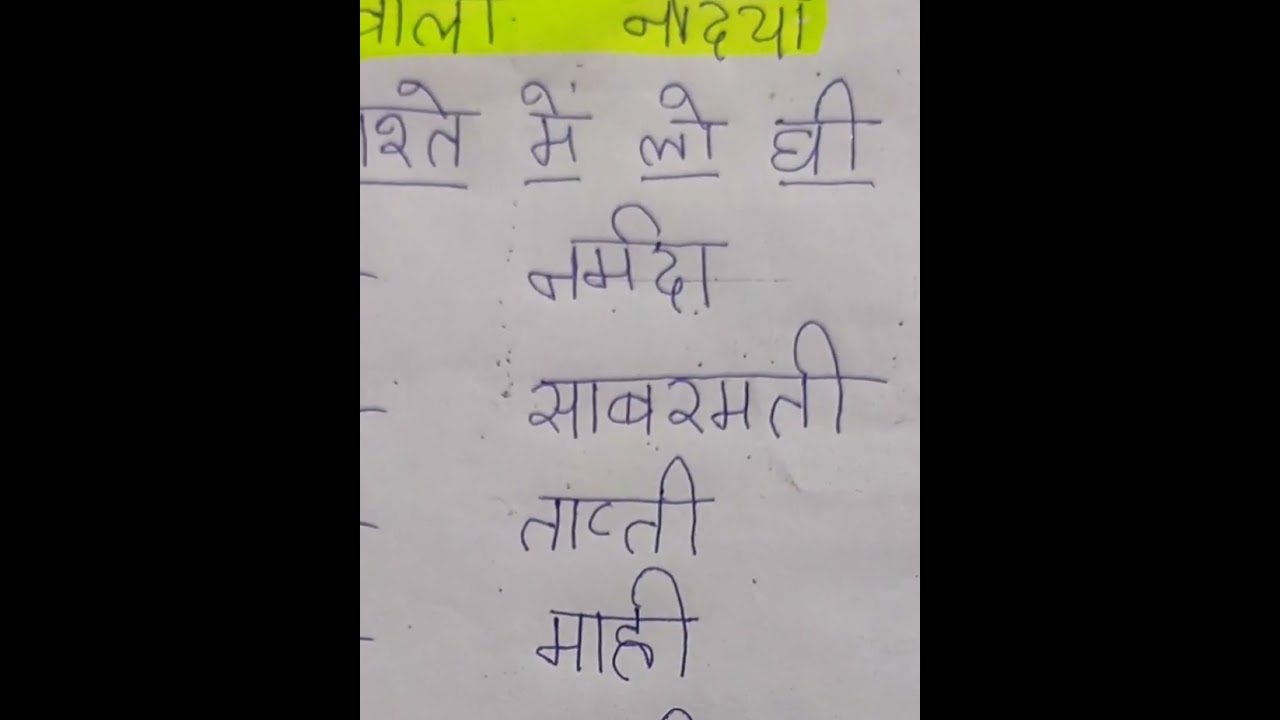 वाली नदियाँ
श्ते में लो घी
- नर्मदा
- साबरमती
- ताप्ती
- माही